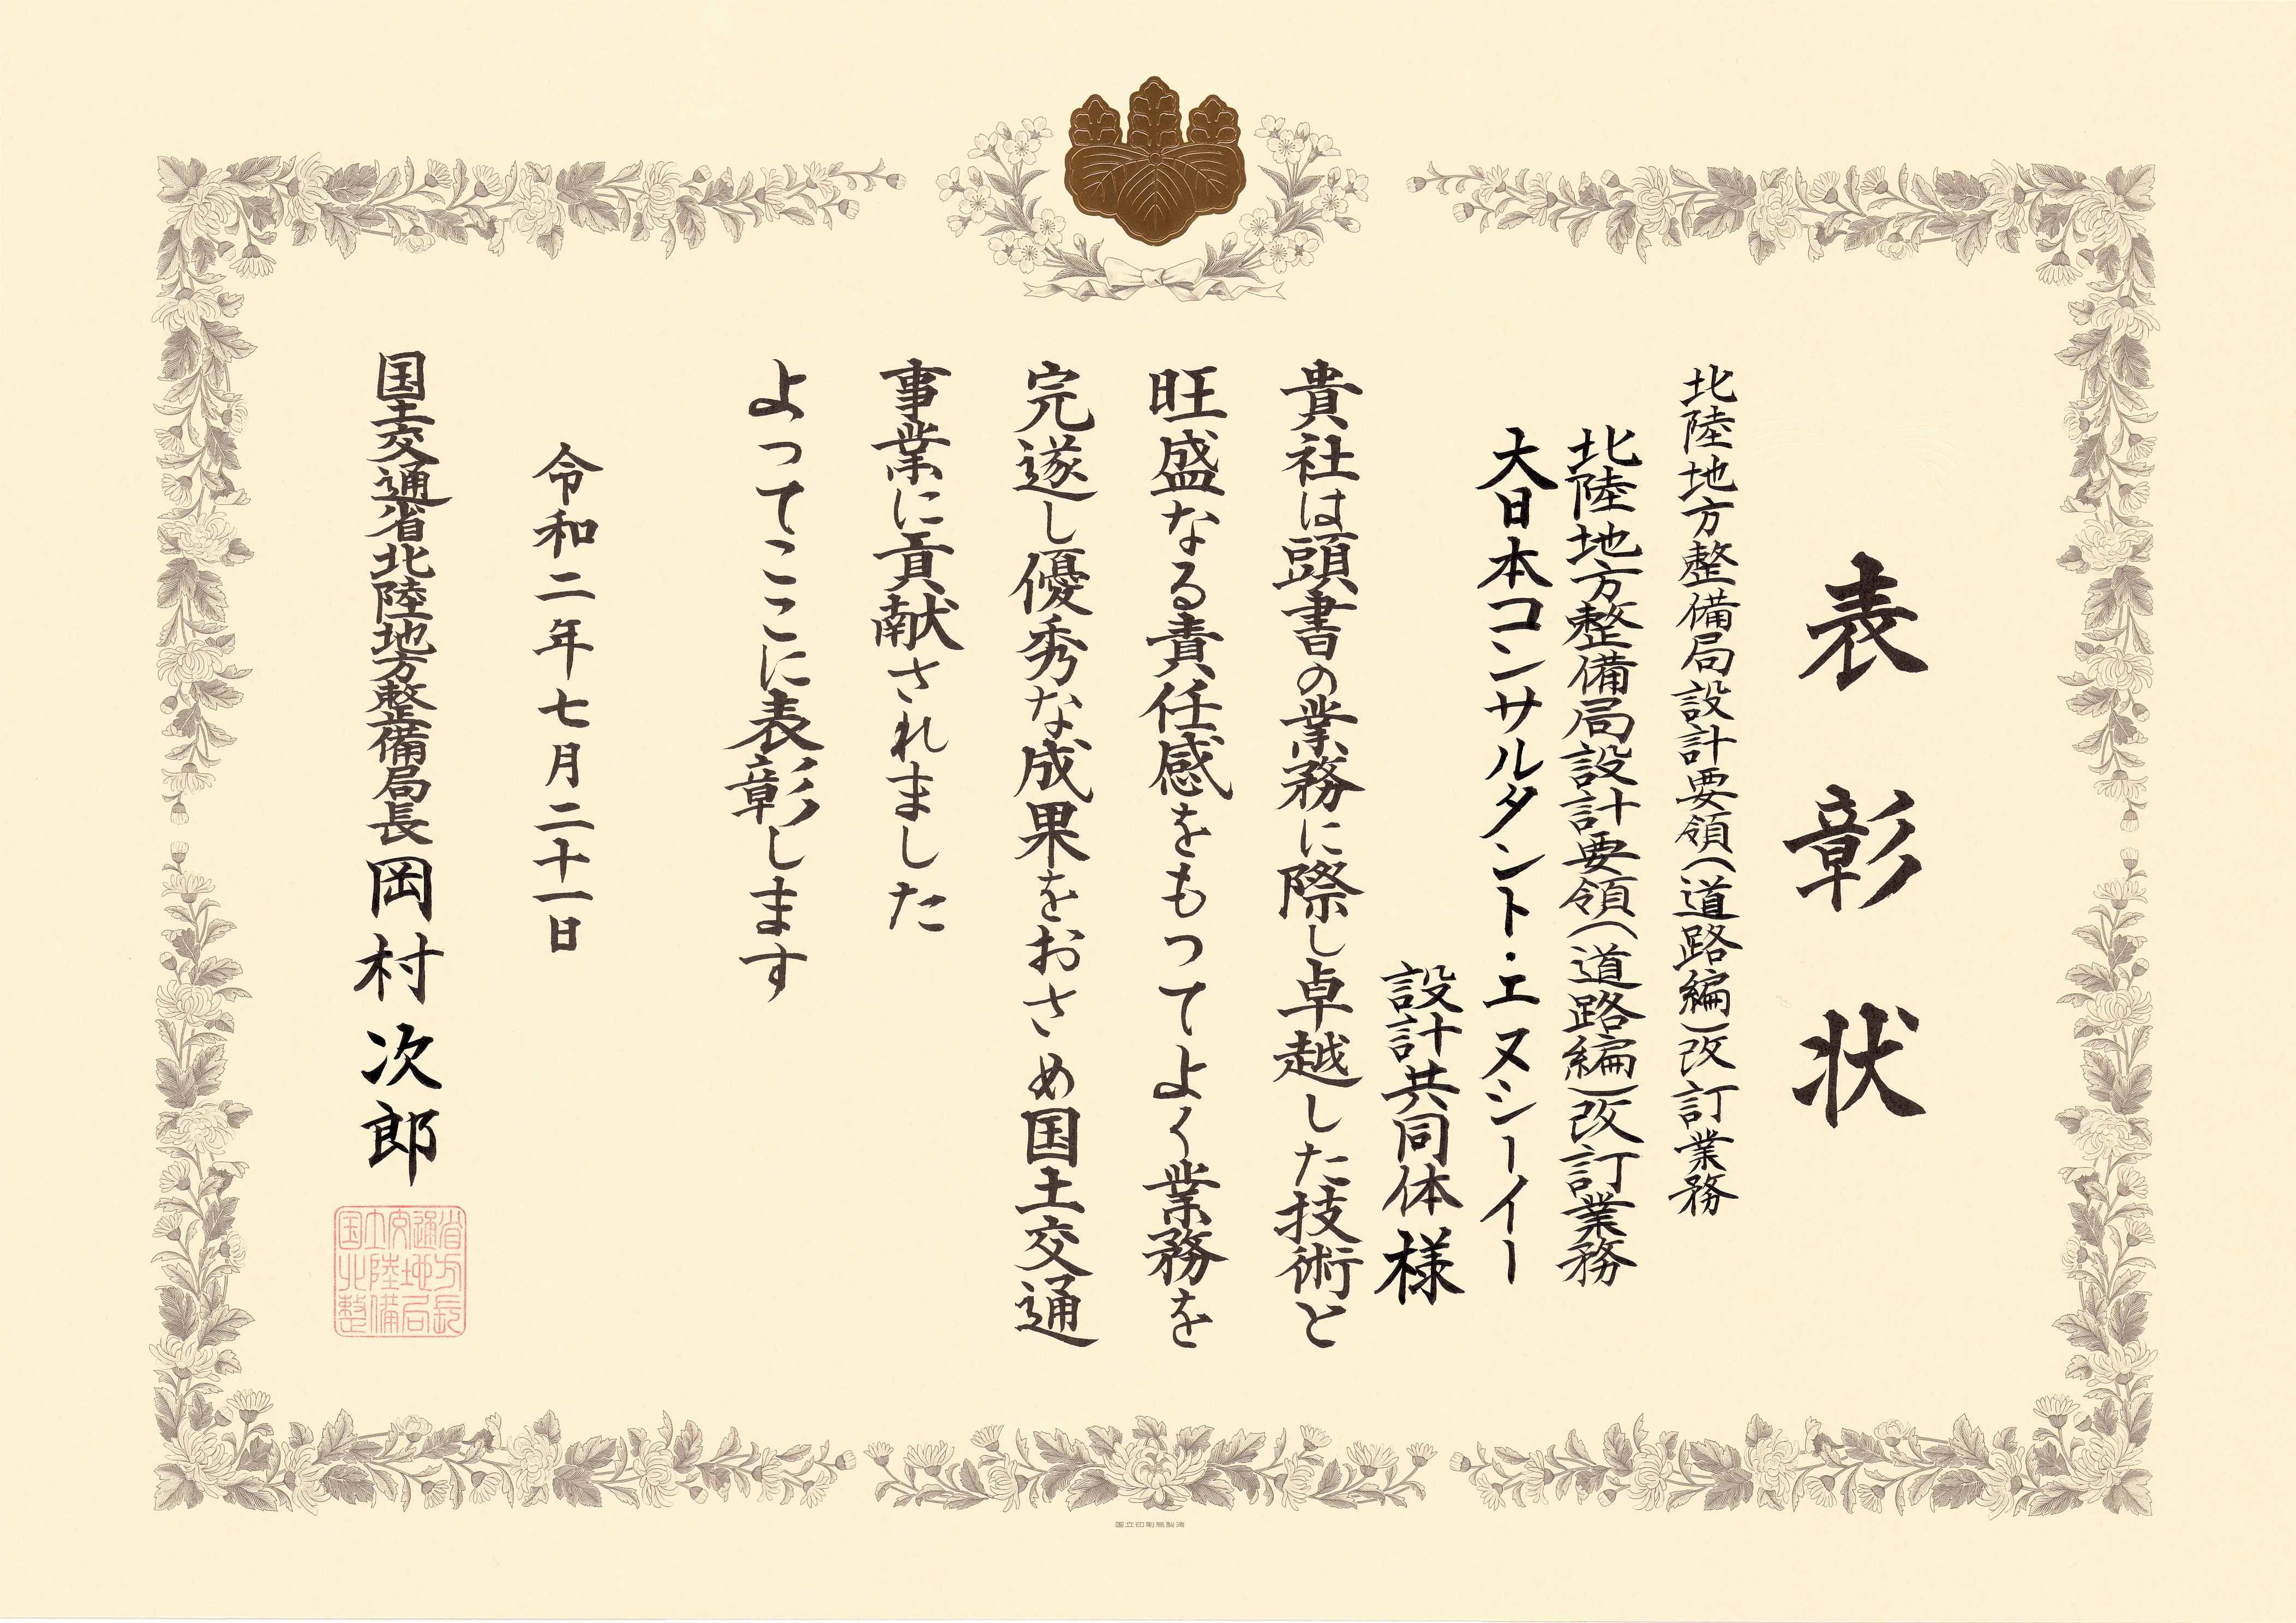 表彰状
北陸地方整備局設計要領(道路編)改訂業務
北陸地方整備局設計要領(道路編)改訂業務
大日本コンサルタント・エヌシーイー
設計共同体 様
貴社は頭書の業務に際し卓越した技術と
旺盛なる責任感をもつてよく業務を
完遂し優秀な成果をおさめ国土交通
事業に貢献されました
よってここに表彰します
令和二年七月二十一日
国土交通省北陸地方整備局長 岡村次郎
国土交通省
北陸地方
整備局長
国立印刷局製造